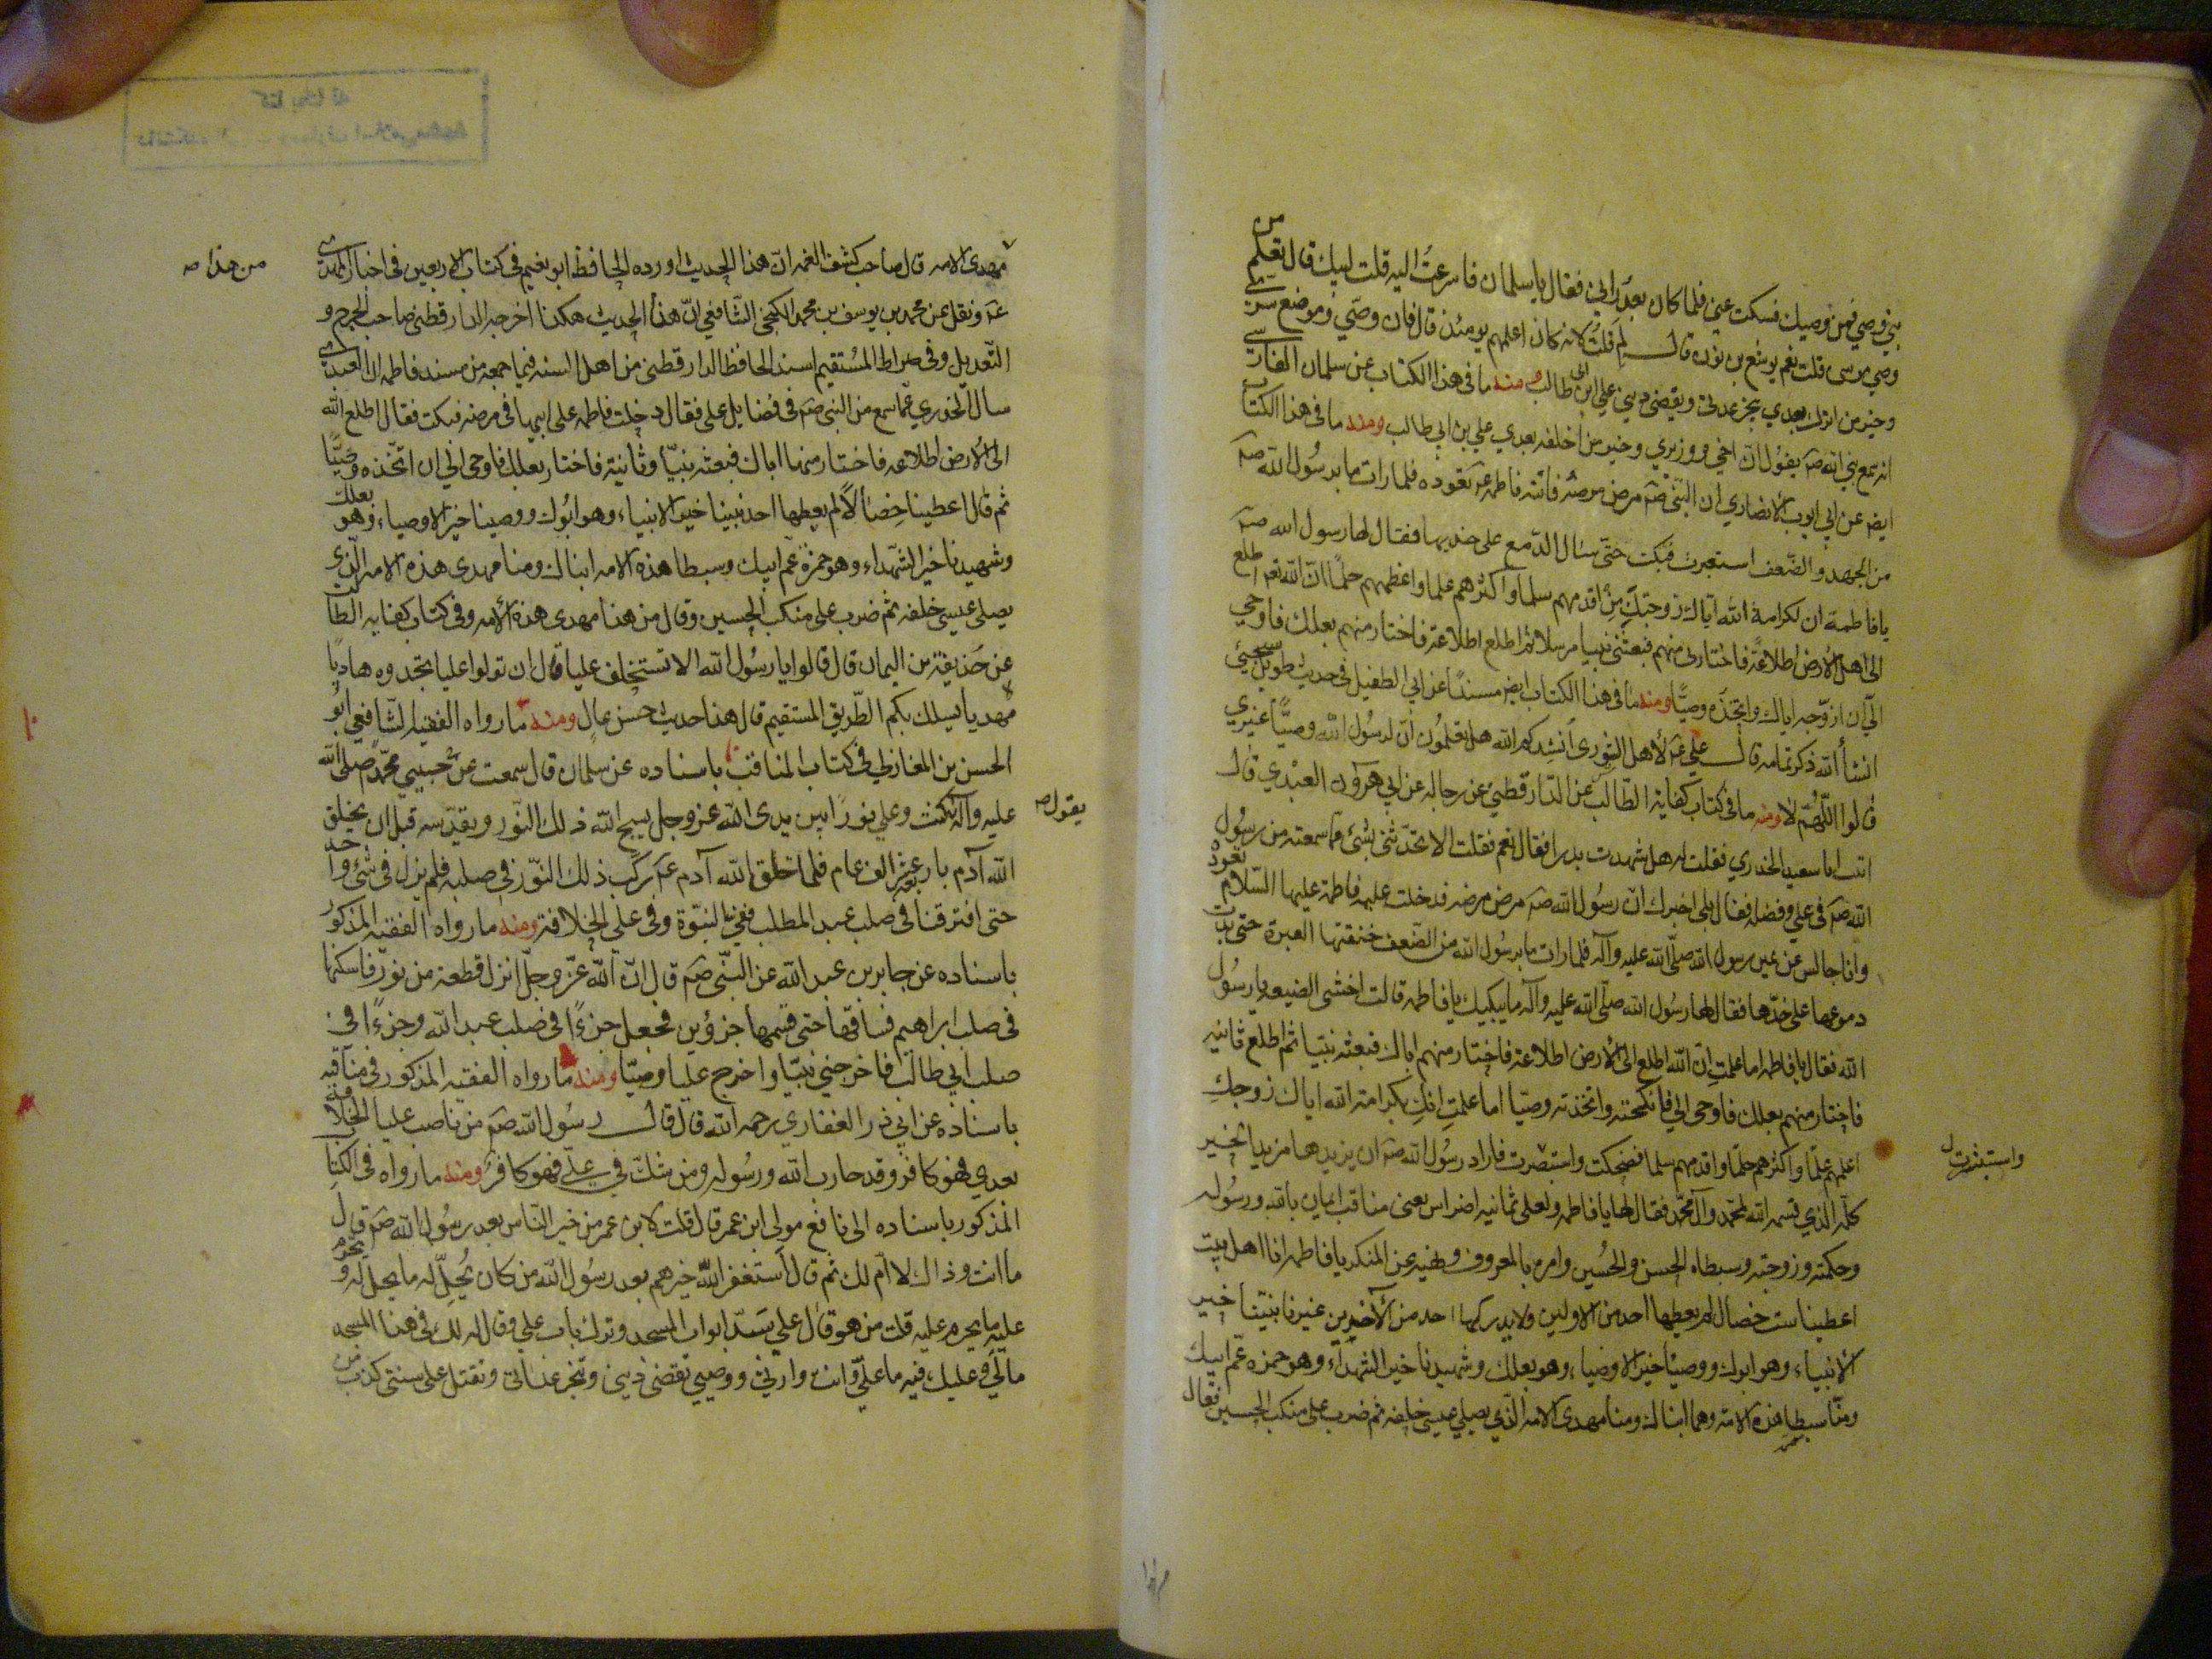 نبي وصي فمن وصيك فسكت عني فلما كان بعد رآني فقال يا سلمان فاسرعت اليه قلت لبيك قال تعلم من
وصي موسى قلت نعم يوشع بن نون قال لم قلت لانه كان اعلمهم يومئذ قال فان وصيي وموضع سري
وخير من اترك بعدي ينجز عدتي ويقضي ديني علي ابن ابي طالب ومنه ما في هذا الكتاب عن سلمان الفارسي
انه سمع نبي الله صم يقول ان اخي ووزيري وخير من اخلفه بعدي علي بن ابي طالب ومنه ما في هذا الكتاب
ايض عن ابي ايوب الانصاري ان النبي صم مرض مرضه فاتته فاطمه عم تعوده فلما رات ما برسول الله صم
من الجهد والضعف استعبرت فبكت حتى سال الدمع على خديها فقال لها رسول الله صم
يا فاطمة ان لكرامة الله اياك زوجتك من اقدمهم سلما واكثرهم علما واعظمهم حلما ان الله تعم اطلع
الى اهل الارض اطلاعة فاختارني منهم فبعثني نبيا مرسلا ثم اطلع اطلاعة فاختار منهم بعلك فاوحى
الي ان ازوجه اياك واتخذه وصيا ومنه ما في هذا الكتاب ايض مسندا عن ابي الطفيل في حديث طويل سيجئ
انشأ الله ذكر تمامه قال علي عم لاهل الشورى انشدكم الله هل تعلمون ان لرسول الله وصيا غيري
قالوا اللهم لا ومنه ما في كتاب كفاية الطالب عن الدارقطني عن رجاله عن ابي هرون العبدي قال
اتيت ابا سعيد الخدري فقلت له هل شهدت بدرا فقال نعم فقلت الا تحدثني بشئ مما سمعته من رسول
الله صم في علي وفضله فقال بلى اخبرك ان رسول الله صم مرض مرضه فدخلت عليه فاطمة عليها السلام تعوده
وانا جالس عن يمين رسول الله صلى الله عليه وآله فلما رات ما برسول الله من الضعف خنقتها العبرة حتى بدت
دموعها على خدها فقال لها رسول الله صلى الله عليه وآله ما يبكيك يا فاطمه قالت اخشى الضيعه يا رسول
الله فقال يا فاطمه اما علمت ان الله اطلع الى الارض اطلاعة فاختار منهم اباك فبعثه نبيا ثم اطلع ثانيه
فاختار منهم بعلك فاوحى الي فانكحته واتخذته وصيا اما علمت انك بكرامة الله اياك زوجك
اعلمهم علما واكثرهم حلما واقدمهم سلما فضحكت واستبصرت فاراد رسول الله صم ان يزيدها مزيد الخير
واستبشرت ل
كله الذي قسمه الله لمحمد وآل محمد فقال لها يا فاطمه ولعلي ثمانيه اضراس يعني مناقب ايمان بالله ورسوله
وحكمته وزوجته وسبطاه الحسن والحسين وامره بالمعروف ونهيه عن المنكر يا فاطمه انا اهل بيت
اعطينا ست خصال لم يعطها احد من الاولين ولا يدركها احد من الآخرين غيرنا نبينا خير
الانبياء وهو ابوك ووصينا خير الاوصياء وهو بعلك وشهيدنا خير الشهداء وهو حمزه عم ابيك
ومنا سبطا هذه الامة وهما ابناك ومنا مهدي الامه الذي يصلي عيسى خلفه ثم ضرب على منكب الحسين فقال
من هذا صه
مهدي الامه قال صاحب كشف الغمه ان هذا الحديث اورده الحافظ ابو نعيم في كتاب الاربعين في اخبار المهدي
عم ونقل عن محمد بن يوسف بن محمد الكنجي الشافعي ان هذا الحديث هكذا اخرجه الدارقطني صاحب الجرح و
التعديل وفي صراط المستقيم اسند الحافظ الدارقطني من اهل السنه فيما جمعه من مسند فاطمه ان العبدي
سال الخدري عما سمع من النبي صم في فضايل علي فقال دخلت فاطمه على ابيها في مرضه فبكت فقال اطلع الله
الى الارض اطلاعه فاختار منها اباك فبعثه نبيا وثانية فاختار بعلك فاوحى الي ان اتخذه وصيا
ثم قال اعطينا خصالا لم يعطها احد نبينا خير الانبياء وهو ابوك ووصينا خير الاوصياء وهو بعلك
وشهيدنا خير الشهداء وهو حمزة عم ابيك وسبطا هذه الامه ابناك ومنا مهدي هذه الامه الذي
يصلي عيسى خلفه ثم ضرب على منكب الحسين وقال من هذا مهدي هذه الامه وفي كتاب كفايه الطالب
عن حذيفة بن اليمان قال قالوا يا رسول الله الا تستخلف عليا قال ان تولوا عليا تجدوه هاديا
مهديا يسلك بكم الطريق المستقيم قال هذا حديث حسن عال ومنه ما رواه الفقيه الشافعي ابو
الحسن بن المغازلي في كتاب المناقب باسناده عن سلمان قال سمعت عن حبيبي محمد صلى الله
يقول صه
عليه وآله كنت وعلي نورا بين يدي الله عز وجل يسبح الله ذلك النور ويقدسه قبل ان يخلق
الله آدم باربعة عشر الف عام فلما خلق الله آدم عم ركب ذلك النور في صلبه فلم يزل في شئ واحد
حتى افترقنا في صلب عبد المطلب ففي النبوة وفي علي الخلافة ومنه ما رواه الفقيه المذكور
باسناده عن جابر بن عبد الله عن النبي صم قال ان الله عز وجل انزل قطعة من نور فاسكنها
في صلب ابراهيم فساقها حتى قسمها جزؤين فجعل جزءا في صلب عبد الله وجزءا في
صلب ابي طالب فاخرجني نبيا واخرج عليا وصيا ومنه ما رواه الفقيه المذكور في مناقبه
باسناده عن ابي ذر الغفاري رحمه الله قال قال رسول الله صم من ناصب عليا الخلافة
بعدي فهو كافر وقد حارب الله ورسوله ومن شك في علي فهو كافر ومنه ما رواه في الكتاب
المذكور باسناده الى نافع مولى ابن عمر قال قلت لابن عمر من خير الناس بعد رسول الله صم قال
ما انت وذاك لا ام لك ثم قال استغفر الله خيرهم بعد رسول الله من كان يحل له ما يحل له ويحرم
عليه ما يحرم عليه قلت من هو قال علي سد ابواب المسجد وترك باب علي وقال له لك في هذا المسجد
مالي وعليك فيه ما علي وانت وارثي ووصيي تقضي ديني وتنجز عداتي وتقتل على سنتي كذب من